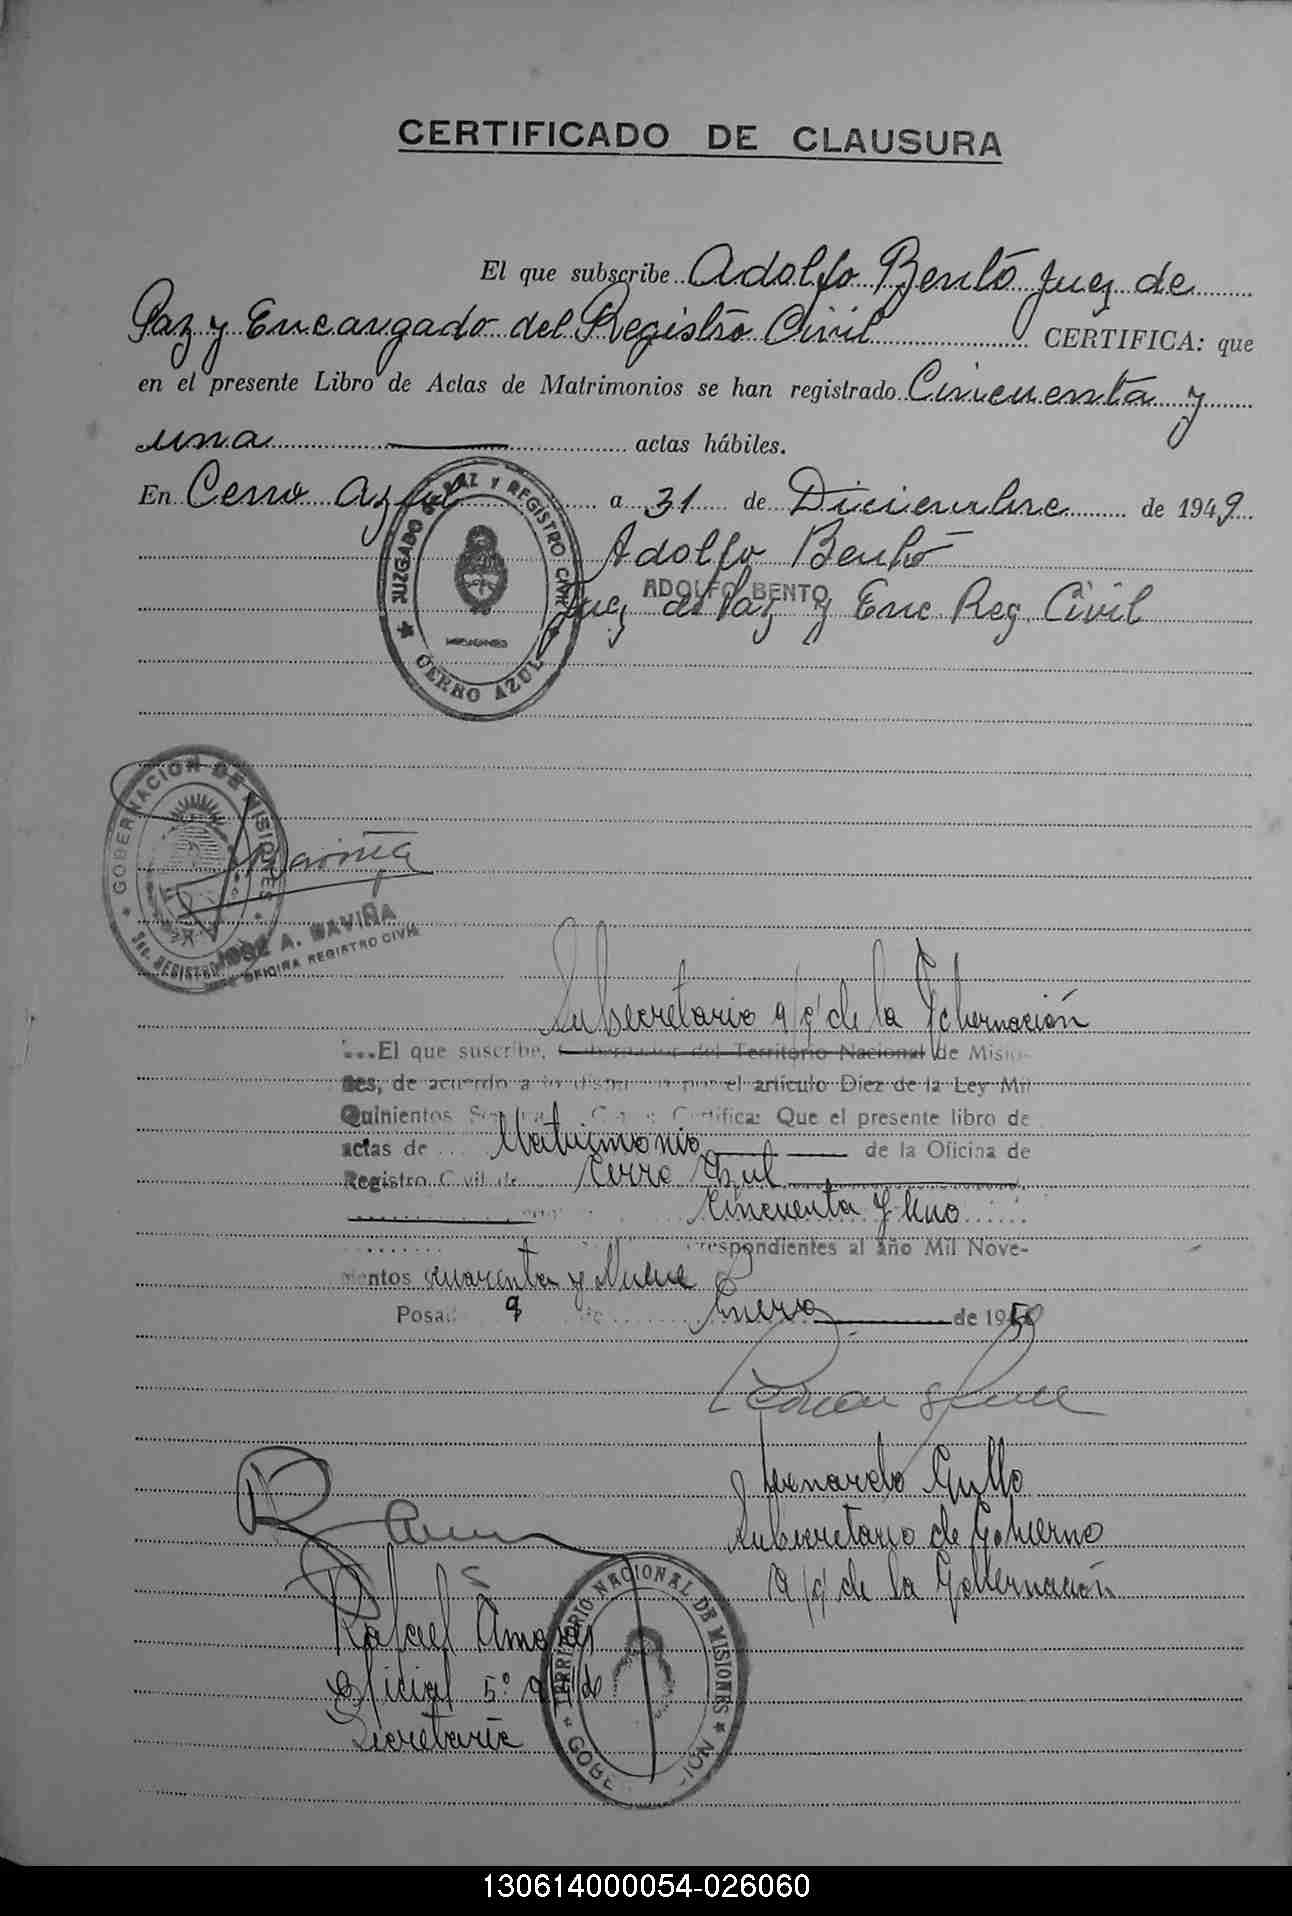 CERTIFICADO DE CLAUSURA
El que subscribe Adolfo Bentó Juez de
Paz y Encargado del Registro Civil CERTIFICA: que
en el presente Libro de Actas de Matrimonios se han registrado Cincuenta y
una actas hábiles.
En Cerro Azul a 31 de Diciembre de 1949
JUZGADO DE PAZ Y REGISTRO CIVIL
CERRO AZUL
Adolfo Bentó
ADOLFO BENTO
Juez de Paz y Enc Reg. Civil
GOBERNACION DE MISIONES
Sec. REGISTRO
JOSE A. NAVIÑA
OFICINA REGISTRO CIVIL
Subsecretario a/c de la Gobernación
El que suscribe, Gobernador del Territorio Nacional de Misio-
nes, de acuerdo a lo por el artículo Diez de la Ley Mil
Quinientos Certifica: Que el presente libro de
actas de Matrimonio de la Oficina de
Registro Civil de Cerro Azul
Cincuenta y Uno
respondientes al año Mil Nove-
cientos cuarenta y Nueve
Posadas 9 de Enero de 1950
Gullo
Subsecretario de Gobierno
a/c de la Gobernación
Rafael
Oficial 5º a/c de
Secretaría
TERRITORIO NACIONAL DE MISIONES
130614000054-026060